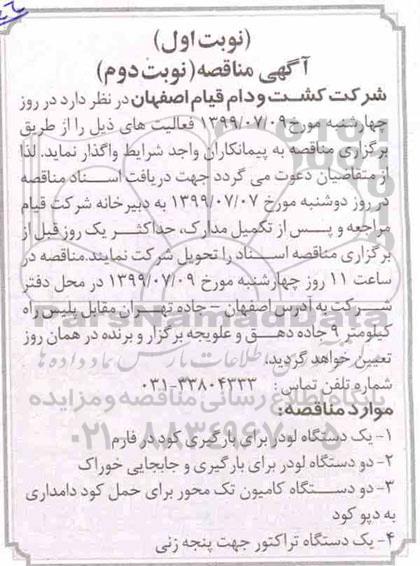 (نوبت اول)
آگهی مناقصه(نوبت دوم)
شرکت کشت ودام قیام اصفهان در نظر دارد در روز
چهارشنبه مورخ ۱۳۹۹/۰۷/۰۹ فعالیت های ذیل را از طریق
برگزاری مناقصه به پیمانکاران واجد شرایط واگذار نماید. لذا
از متقاضیان دعوت می گردد جهت دریافت اسناد مناقصه
در روز دوشنبه مورخ ۱۳۹۹/۰۷/۰۷ به دبیرخانه شرکت قیام
مراجعه و پس از تکمیل مدارک، حداکثر یک روز قبل از
برگزاری مناقصه اسناد را تحویل شرکت نمایند.مناقصه در
ساعت ۱۱ روز چهارشنبه مورخ ۱۳۹۹/۰۷/۰۹ در محل دفتر
شرکت به آدرس اصفهان – جاده تهران مقابل پلیس راه
کیلومتر ۹ جاده دهق و علویجه برگزار و برنده در همان روز
تعیین خواهد گردید.
شماره تلفن تماس: ۳۳۸۰۴۳۳۳-۰۳۱
موارد مناقصه:
۱- یک دستگاه لودر برای بارگیری کود در فارم
۲- دو دستگاه لودر برای بارگیری و جابجایی خوراک
۳-دو دستگاه کامیون تک محور برای حمل کود دامداری
به دپو کود
۴- یک دستگاه تراکتور جهت پنجه زنی
ParsNamadData
پایگاه اطلاع رسانی مناقصه و مزایده
۰۲۱-۸۸۳۴۹۶۷۰-۵